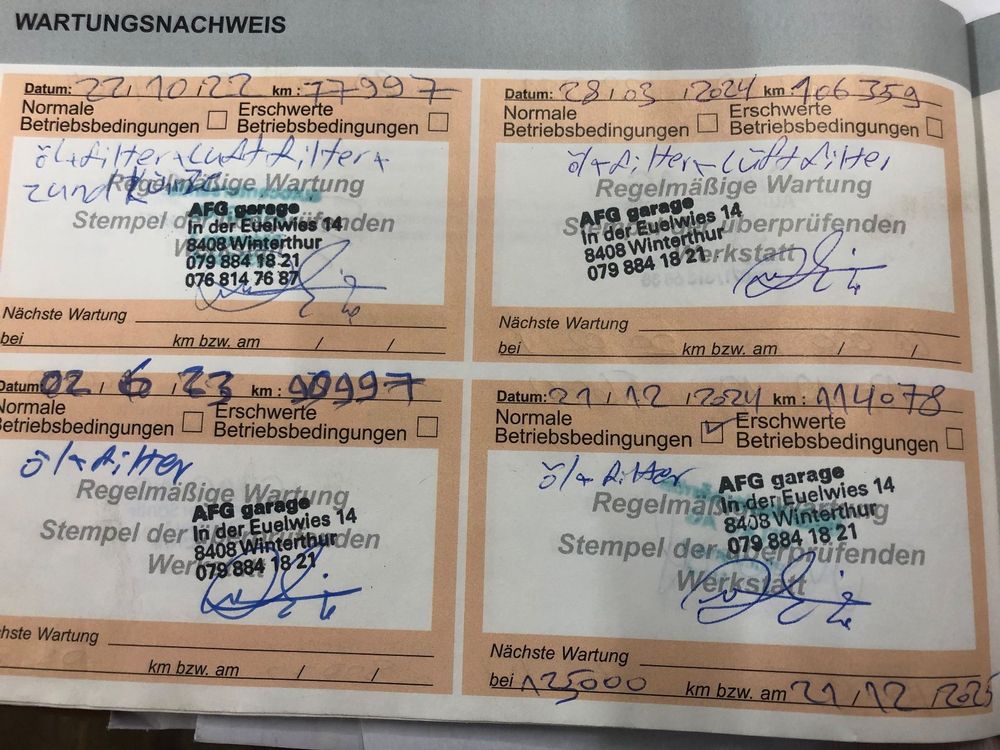 WARTUNGSNACHWEIS
Datum: 22.10.22 km : 77997
Normale Betriebsbedingungen
Erschwerte Betriebsbedingungen
öl+filter+Luftfilter+
zundkerze
Regelmäßige Wartung
Stempel der überprüfenden
Werkstatt
AFG garage
In der Euelwies 14
8408 Winterthur
079 884 18 21
076 814 76 87
Nächste Wartung
bei km bzw. am / /
Datum: 02.6.23 km : 90997
Normale Betriebsbedingungen
Erschwerte Betriebsbedingungen
öl+filter
Regelmäßige Wartung
Stempel der überprüfenden
Werkstatt
AFG garage
In der Euelwies 14
8408 Winterthur
079 884 18 21
chste Wartung
km bzw. am / /
Datum: 28.03.2024 km 106359
Normale Betriebsbedingungen
Erschwerte Betriebsbedingungen
öl+filter+Luftfilter
Regelmäßige Wartung
Stempel der überprüfenden
Werkstatt
AFG garage
In der Euelwies 14
8408 Winterthur
079 884 18 21
Nächste Wartung
bei km bzw. am / /
Datum: 21.12.2024 km : 114078
Normale Betriebsbedingungen
Erschwerte Betriebsbedingungen
öl+filter
Regelmäßige Wartung
Stempel der überprüfenden
Werkstatt
AFG garage
In der Euelwies 14
8408 Winterthur
079 884 18 21
Nächste Wartung
bei 125000 km bzw. am 21.12.2025